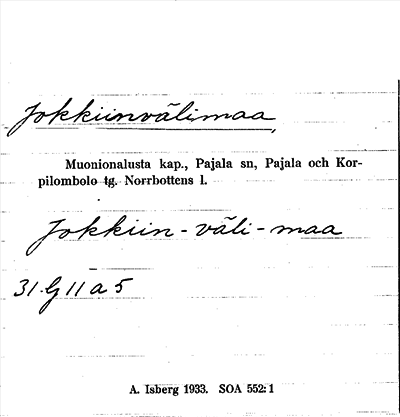 Jokkiinvälimaa,
Muonionalusta kap., Pajala sn, Pajala och Kor-
pilombolo tg. Norrbottens l.
Jokkiin - väli - maa
31. G 11 a 5
A. Isberg 1933. SOA 552:1